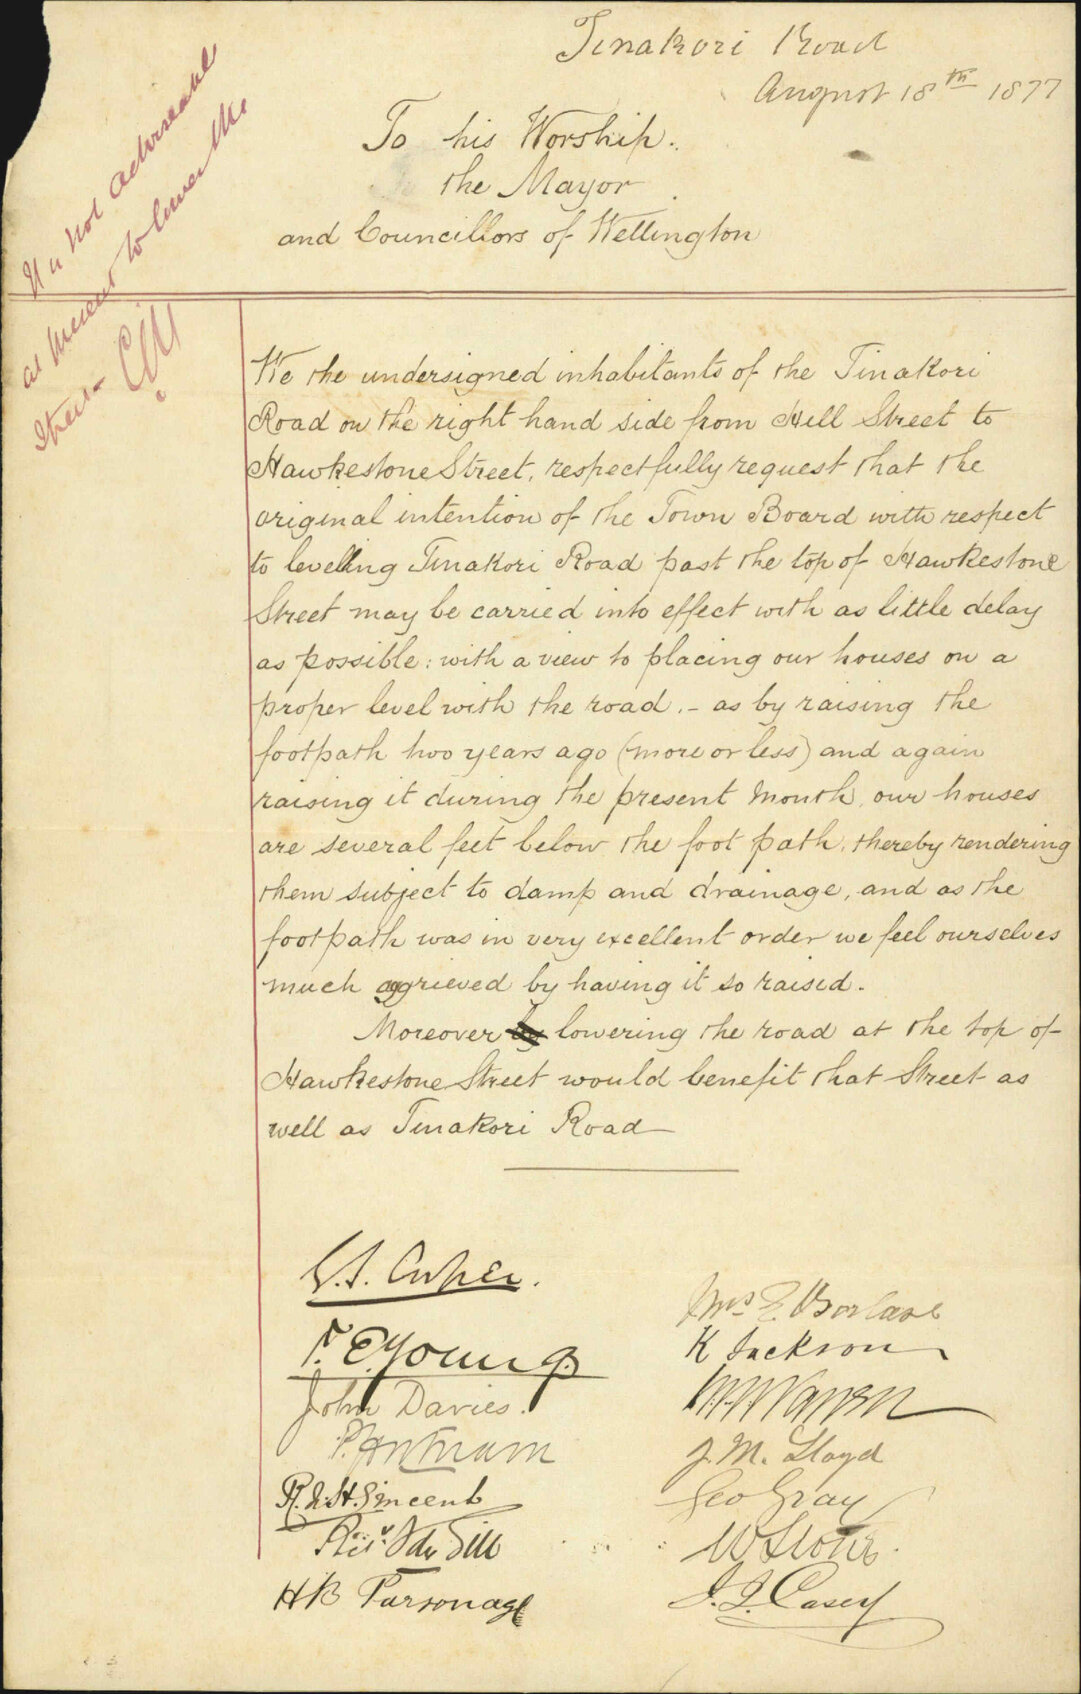 Tinakori Road
August 18th 1877
To his Worship.
the Mayor
and Councillors of Wellington
It is not adviseable
as present to lower the
Street -
We the undersigned inhabitants of the Tinakori
Road on the right hand side from Hill Street to
Hawkestone Street, respectfully request that the
original intention of the Town Board with respect
to levelling Tinakori Road past the top of Hawkestone
Street may be carried into effect with as little delay
as possible: with a view to placing our houses on a
proper level with the road. - as by raising the
footpath two years ago (more or less) and again
raising it during the present month, our houses
are several feet below the foot path, thereby rendering
them subject to damp and drainage, and as the
footpath was in very excellent order we feel ourselves
much aggrieved by having it so raised.
Moreover by lowering the road at the top of
Hawkestone Street would benefit that Street as
well as Tinakori Road
Mrs E. Borlase
F. E. Young
K Jackson
John Davies.
W. Warren
J. M. Lloyd
Geo Gray
H B Parsonage
J. J. Casey